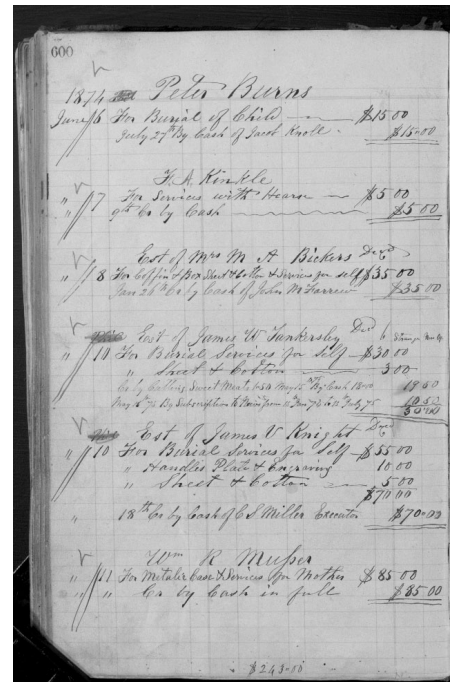 600
1874 Peter Burns
June 6 For Burial of Child $15 00
July 27th By Cash of Jacob Knoll $15-00
F. A. Kinkle
" 7 For Services with Hearse $5 00
" 9th Cr by Cash $5 00
Est of Mrs M A Bickers Decd
" 8 For Coffin & Box Sheet & Cotton & Services for self $35 00
Jan 26th Cr by Cash of John McFarrew $35 00
Est of James W Tankersley Decd
" 10 For Burial Services for Self $30 00
" Sheet & Cotton 3 00
Cr by Cash 18 00
By Subscription July 75
Est of James V Knight Decd
" 10 For Burial Services for Self $55 00
" Handles Plate & Engraving 10 00
" Sheet & Cotton 5 00
$70 00
" 18th Cr by Cash of C S Miller Executor $70-00
Wm R Musser
" 11 For Metalic Case & Services for Mother $85 00
" " Cr by Cash in full $85 00
$243-00